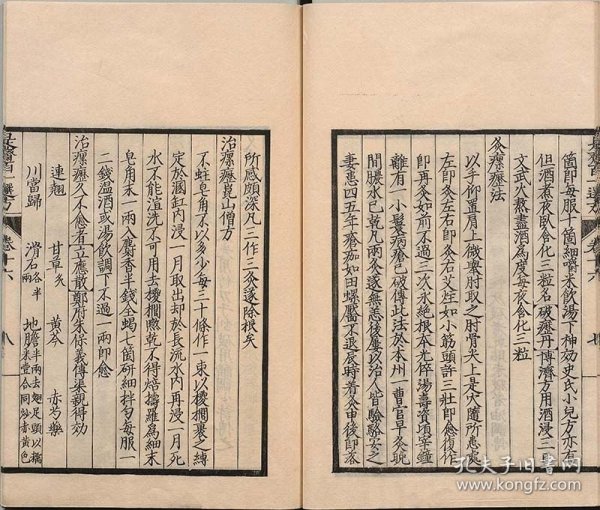 箇即每服十箇細嚼米飲湯下神効史氏小兒方亦有
但酒煮夜臥含化三粒名破癧丹博濟方用酒浸三
文武火熬盡酒為度每夜含化三粒
灸瘰癧法
以手仰置肩上微舉肘取之肘骨尖上是穴隨所患處
左即灸左右即灸右艾炷如小筋頭許三壯即愈復作
即再灸如前不過三次永絕根本光倅湯壽資頃宰鐘
離有一小鬟病瘡已破傳此法於本州一曹官早灸晚
間膿水已乾凡兩灸遂無恙後屢以治人皆驗駱安之
妻患四五年瘡痂如田螺靨不退辰時著灸申後即落
所感頗深凡三作三灸遂除根矣
治瘰癧崑山僧方
不蛀皂角不以多少每三十條作一束以椶櫚裹之縛
定於溷缸內浸一月取出却於長流水內再浸一月死
水不能渲洗不可用去椶櫚曬乾不得焙擣羅為細末
皂角末一兩入麝香半錢全蝎七箇研細拌勻每服一
二錢溫酒或湯飲調下不過一兩即愈
治瘰癧久不愈者立應散鄭府朱保義傳渠親得効
連翹　甘草炙　黃芩　赤芍藥
川當歸　滑石各半兩　地膽半兩去翅足頭以糯米壹合同炒香黃色
卷十六
八
孔夫子旧书网
www.kongfz.com